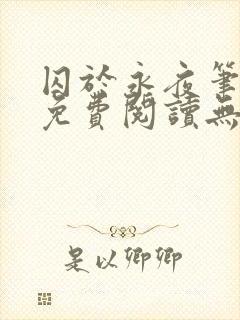 囚於永夜筆
免費閱讀無
是以卿卿